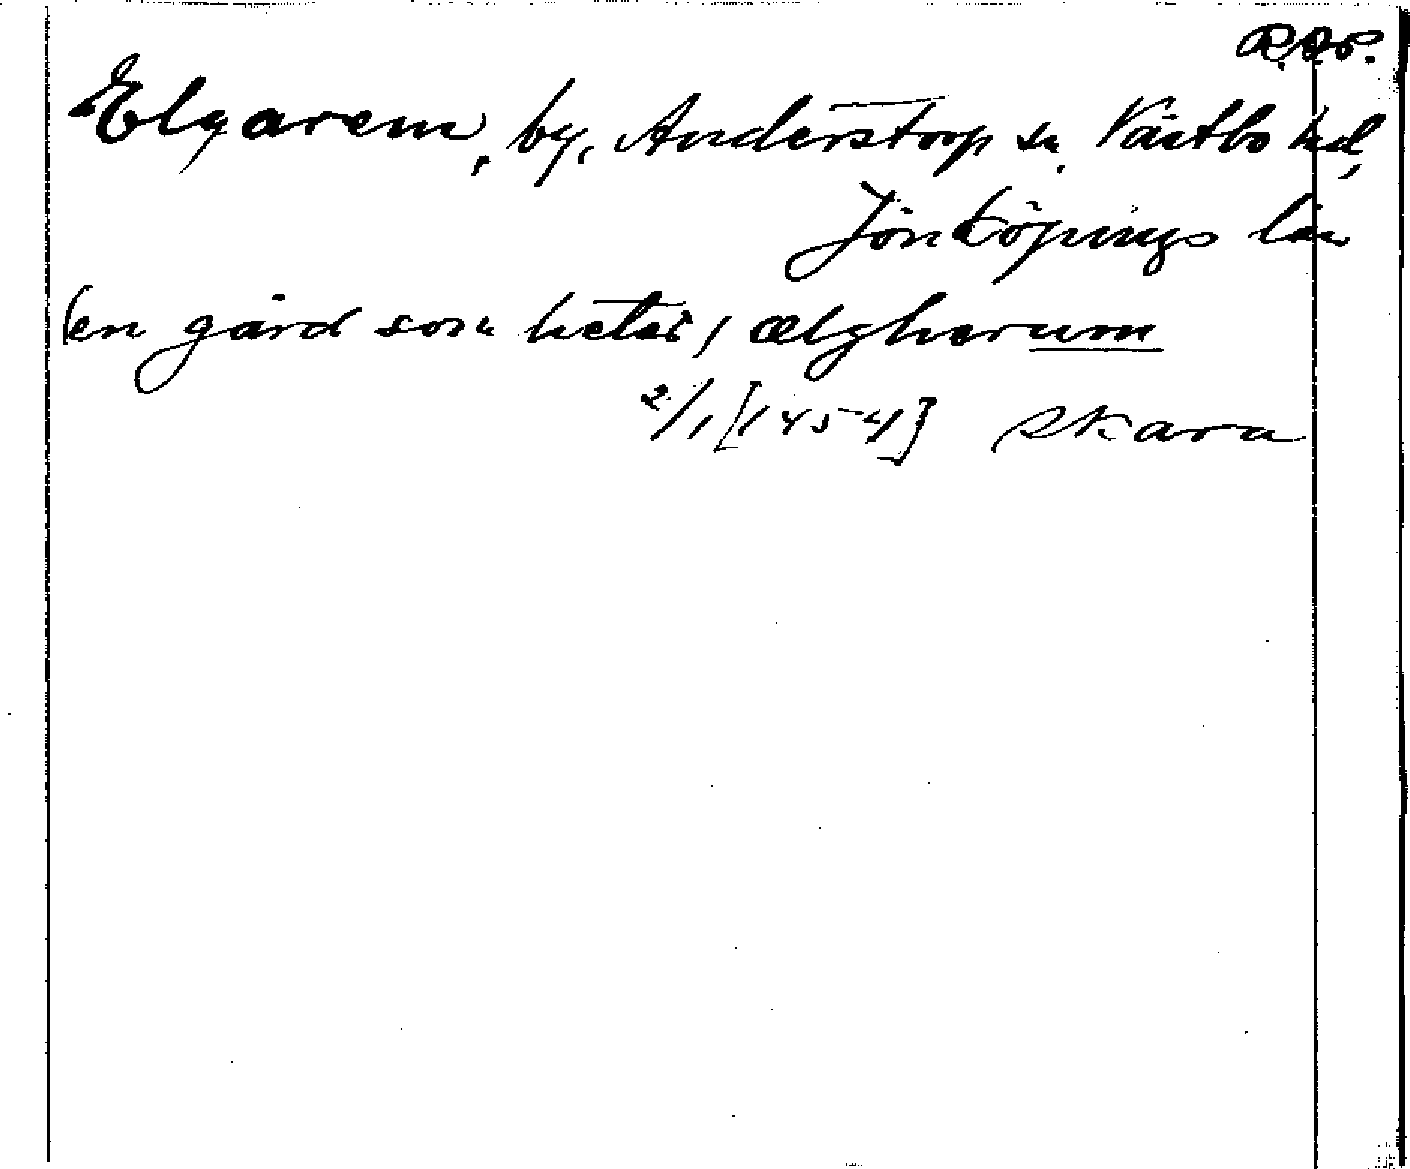 R.A.P.
Elgarem, by, Anderstorp sn. Västbo hd,
Jönköpings län
(en gård som heter) ælgherum
2/1 [1454] Skara